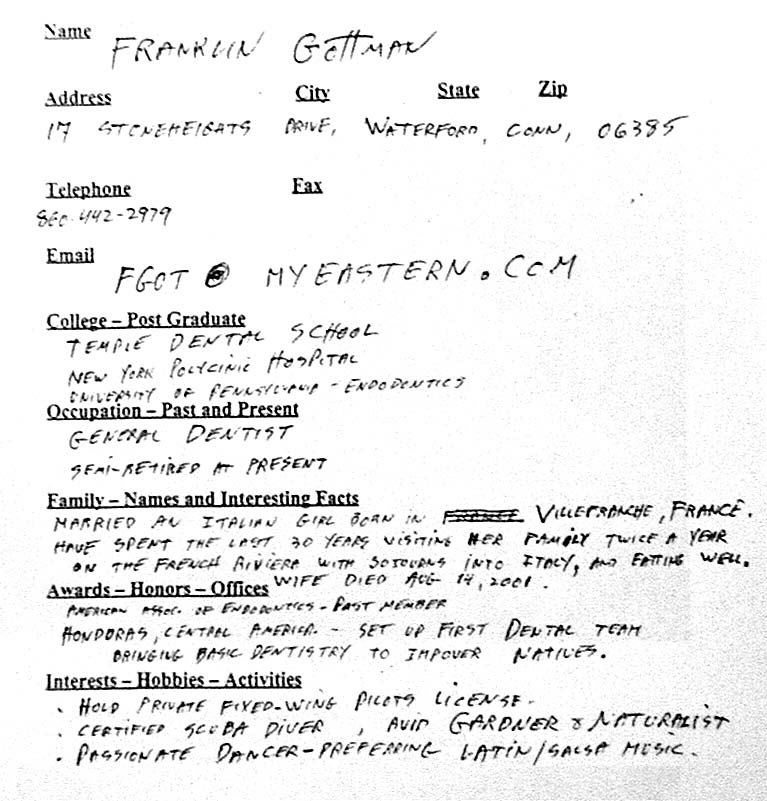 Name
FRANKLIN GOTTMAN
Address City State Zip
17 STONEHEIGHTS DRIVE, WATERFORD, CONN, 06385
Telephone Fax
860-442-2979
Email
FGOT @ MYEASTERN.COM
College – Post Graduate
TEMPLE DENTAL SCHOOL
NEW YORK POLYCINIC HOSPITAL
UNIVERSITY OF PENNSYLVANIA - ENDODONTICS
Occupation – Past and Present
GENERAL DENTIST
SEMI-RETIRED AT PRESENT
Family – Names and Interesting Facts
MARRIED AN ITALIAN GIRL BORN IN FRANCE VILLEFRANCHE, FRANCE.
HAVE SPENT THE LAST 30 YEARS VISITING HER FAMILY TWICE A YEAR
ON THE FRENCH RIVIERA WITH SOJOURNS INTO ITALY, AND EATING WELL.
WIFE DIED AUG 14, 2001.
Awards – Honors – Offices
AMERICAN ASSOC. OF ENDODONTICS - PAST MEMBER
HONDORAS, CENTRAL AMERICA. - SET UP FIRST DENTAL TEAM
BRINGING BASIC DENTISTRY TO IMPOVER NATIVES.
Interests – Hobbies – Activities
. HOLD PRIVATE FIXED-WING PILOTS LICENSE.
. CERTIFIED SCUBA DIVER, AVID GARDNER & NATURALIST
. PASSIONATE DANCER-PREFERRING LATIN/SALSA MUSIC.